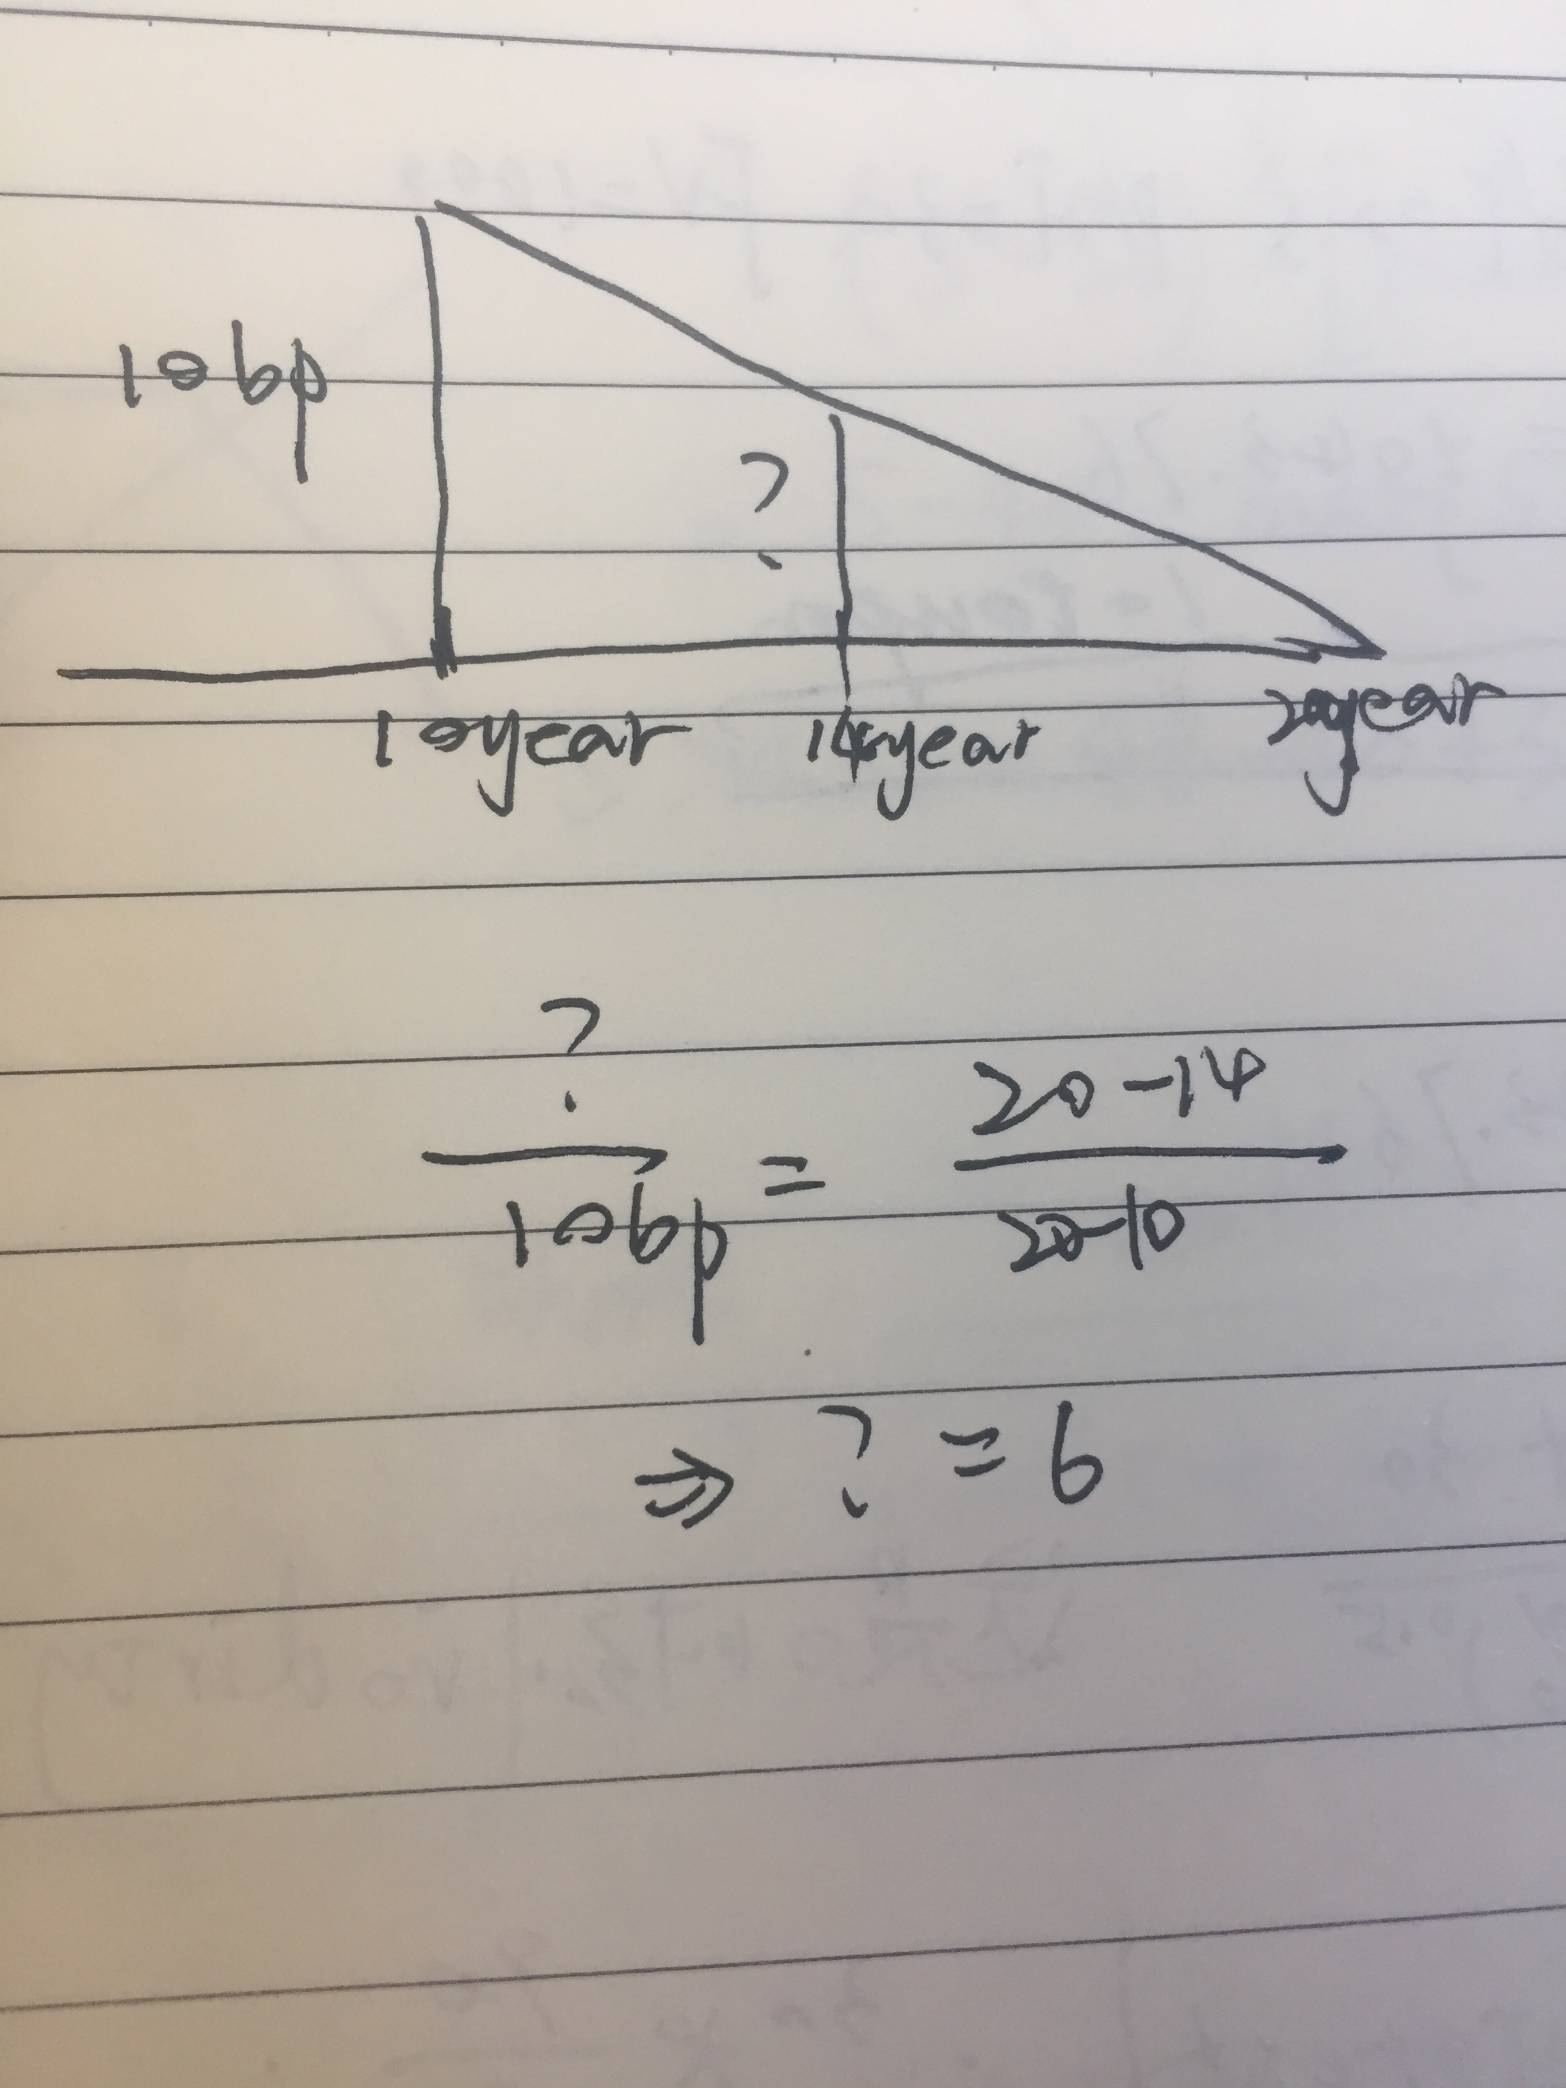 10bp
?
10year 14year 20year
?
10bp = 20-14
20-10
⇒ ? = 6